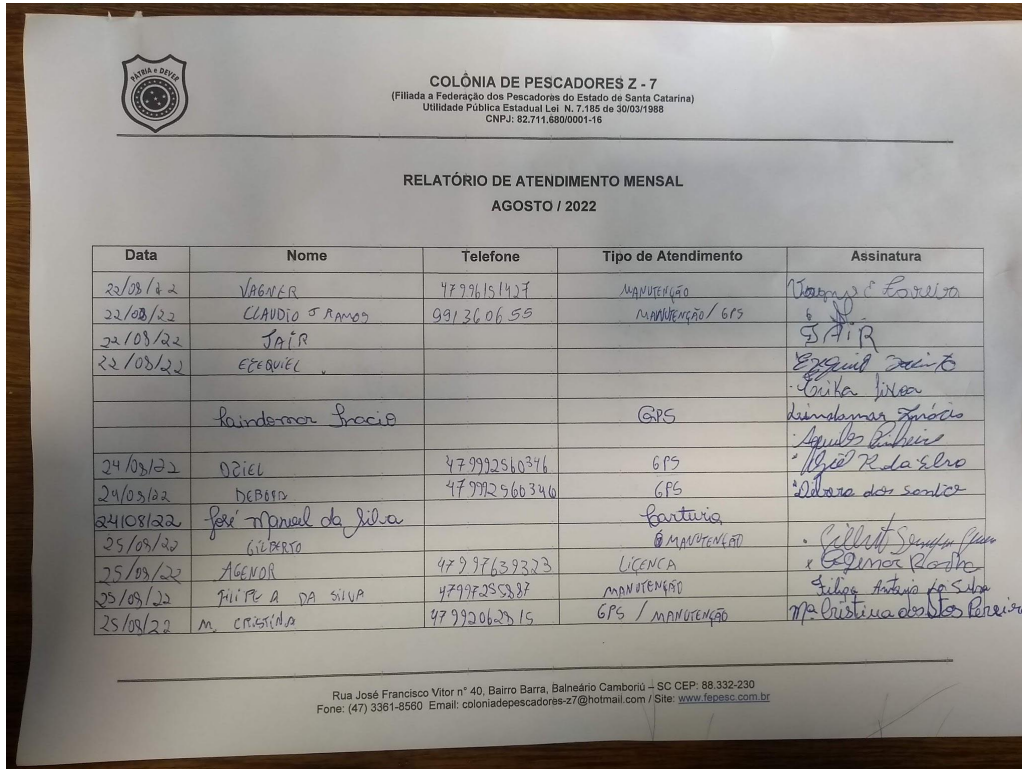 PÁTRIA e DEVER
COLÔNIA DE PESCADORES Z - 7
(Filiada a Federação dos Pescadores do Estado de Santa Catarina)
Utilidade Pública Estadual Lei N. 7.185 de 30/03/1988
CNPJ: 82.711.680/0001-16
RELATÓRIO DE ATENDIMENTO MENSAL
AGOSTO / 2022
Data Nome Telefone Tipo de Atendimento Assinatura
22/08/22 VAGNER 47996151427 MANUTENÇÃO
22/08/22 CLAUDIO J RAMOS 991360655 MANUTENÇÃO / GPS
22/08/22 JAÍR JAIR
22/08/22 EZEQUIEL
Erika
Inacio GPS Lindamar Inácio
Pinheiro
24/08/22 OZIEL 479992560346 GPS Oziel R da Silva
24/08/22 DEBORA 479992560346 GPS Débora dos santos
24/08/22 José Manuel da Silva
25/08/22 GILBERTO MANUTENÇÃO
25/08/22 AGENOR 47997639323 LICENCA Agenor
25/08/22 FILIPE A DA SILVA 47997255887 MANUTENÇÃO Filipe Antonio da Silva
25/08/22 M. CRISTINA 47992062815 GPS / MANUTENÇÃO Mª Cristina dos Stos Pereira
Rua José Francisco Vitor n° 40, Bairro Barra, Balneário Camboriú – SC CEP: 88.332-230
Fone: (47) 3361-8560 Email: coloniadepescadores-z7@hotmail.com / Site: www.fepesc.com.br